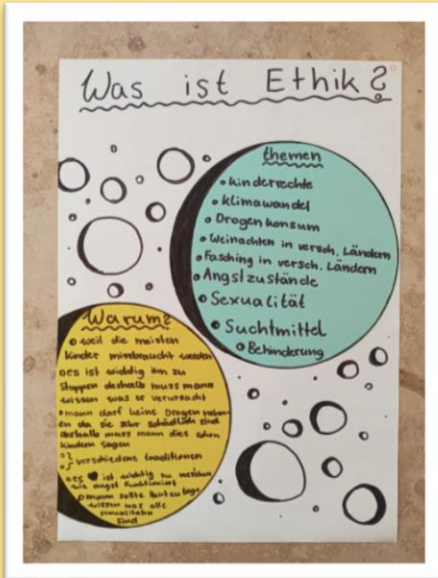 Was ist Ethik?
themen
• Kinderrechte
• Klimawandel
• Drogen konsum
• Weinachten in versch. Ländern
• Fasching in versch. Ländern
• Angstzustände
• Sexualität
• Suchtmittel
• Behinderung
Warum?
• weil die meisten
kinder missbraucht werden
• es ist wichtig ihn zu
stoppen deshalb muss mann
wissen was er verursacht
• mann darf keine Drogen
en da sie sehr schädlich sind
deshalb muss mann dies schon
kindern sagen
verschiedene traditionen
• es ist wichtig zu
wie angst funktioniert
• mann sollte heut zu tage
wissen was alle
sexualitäten
sind